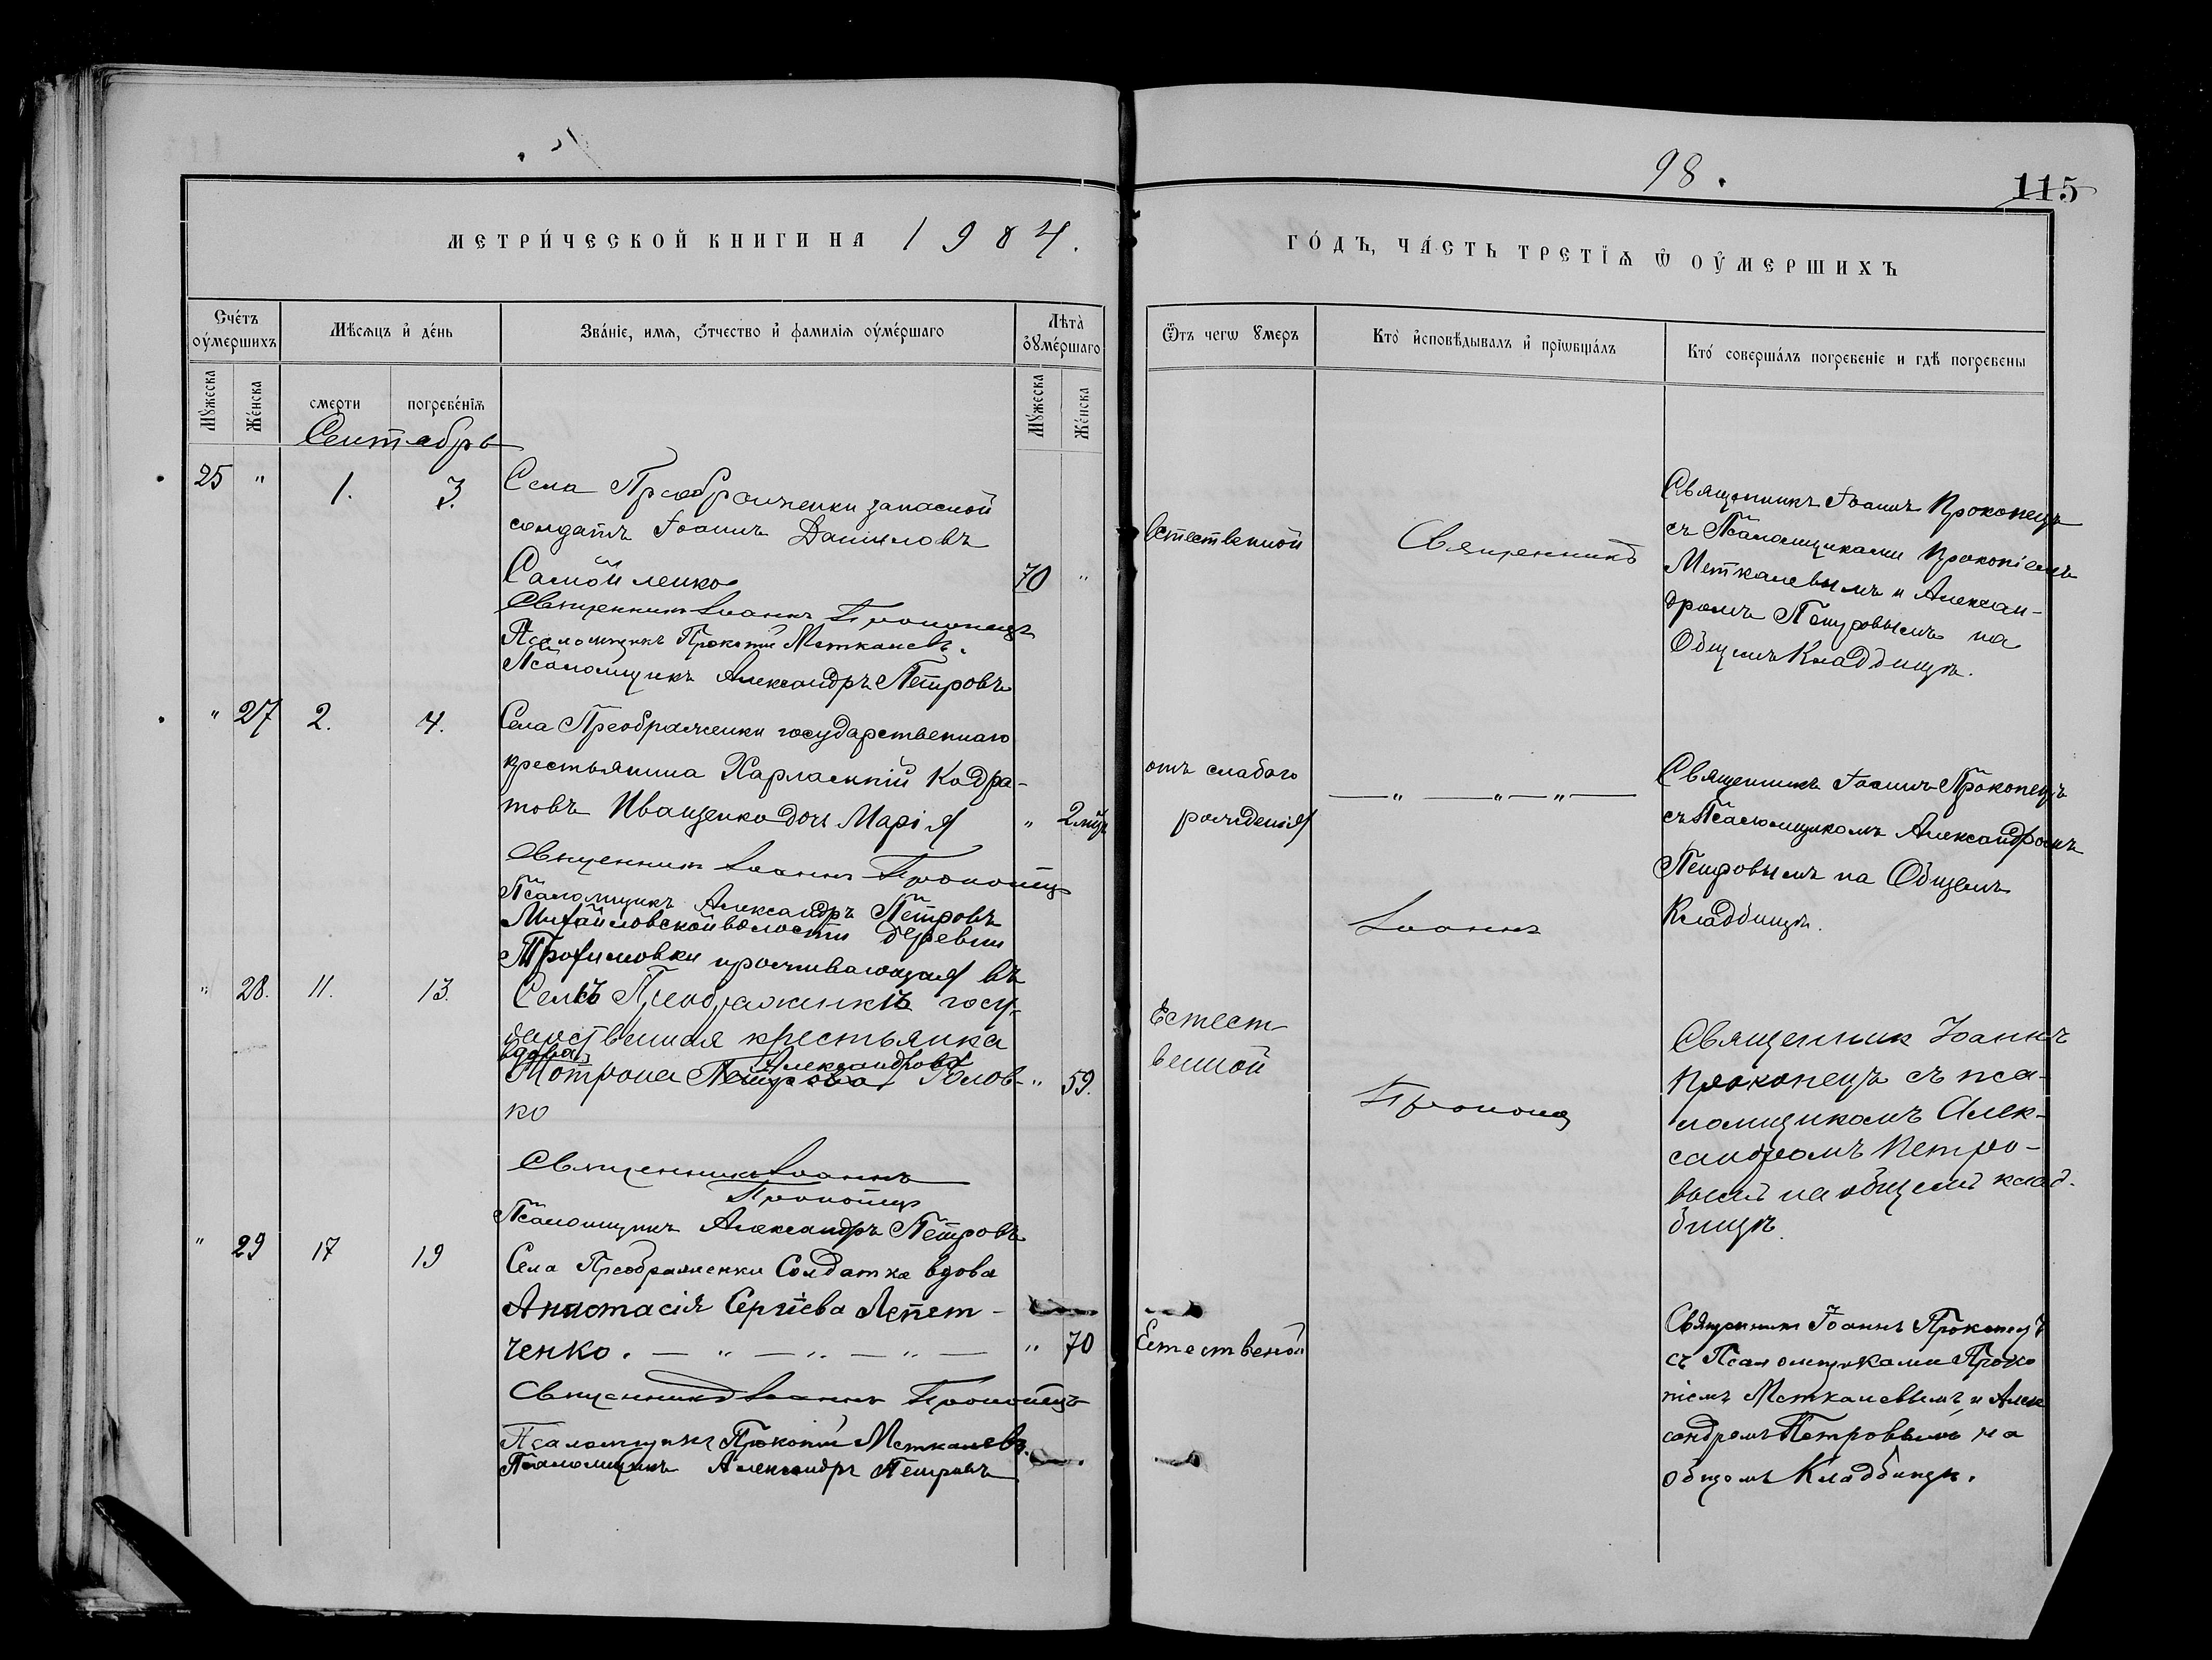 98.
115
МЕТРИ́ЧЕСКОЙ КНИГИ НА 1904.
ГО́ДЪ, ЧА́СТЬ ТРЕТЇѦ Ѿ ОУ҆МЕРШИХЪ
Сче́тъ оу҆ме́ршихъ
Мѣ́сяцъ и҆ де́нь
Зва́нїе, имѧ, ѻ҆́тчество и҆ фамилїѧ оу҆ме́ршаго
Лѣта̀ оу҆ме́ршаго
Ѿтъ чегѡ ꙋмеръ
Кто̀ и҆сповѣ́дывалъ и҆ прїѡбща́лъ
Кто́ соверша́лъ погребе́нїе и гдѣ̀ погребены
Мꙋ́жеска
Же́нска
смерти
погребе́нїѧ
Мꙋ́жеска
Же́нска
Сентябрь
25 " 1. 3.
Села Преображенки запасной
солдатъ Іоаннъ Даниловъ
Самойленко
70 "
Священникъ Іоаннъ Прокопецъ
Псаломщикъ Прокопій Меткалевъ.
Псаломщикъ Александръ Петровъ
Естественной
Священникъ
Священникъ Іоаннъ Прокопецъ
съ Псаломщиками Прокопіемъ
Меткалевымъ и Алексан-
дромъ Петровымъ на
Общемъ Кладбищѣ.
" 27 2. 4.
Села Преображенки государственнаго
крестьянина Харлампій Кодра-
товъ Иващенко дочь Марія
" 2 мѣц
Священникъ Іоаннъ Прокопецъ
Псаломщикъ Александръ Петровъ
отъ слабаго
рожденія
— " — " — " —
Священникъ Іоаннъ Прокопецъ
съ Псаломщикомъ Александромъ
Петровымъ на Общемъ
Кладбищѣ.
Іоаннъ
" 28. 11. 13.
Михайловской волости деревни
Трофимовки проживающая въ
Селѣ Преображенкѣ госу-
дарственная крестьянка
вдова Александрова
Мотрона Петрова Голов-
ко
" 59.
Священникъ Іоаннъ
Прокопецъ
Псаломщикъ Александръ Петровъ
Естест-
венной
Прокопец
Священник Іоаннъ
Прокопецъ съ пса-
ломщикомъ Алек-
сандромъ Петро-
вымъ на общемъ клад-
бищѣ.
" 29 17 19
Села Преображенки Солдатка вдова
Анастасія Сергіева Лепет-
ченко. — " — " — " —
" 70
Священникъ Іоаннъ Прокопецъ
Псаломщикъ Прокопій Меткалевъ.
Псаломщикъ Александръ Петровъ
Естественой
Священник Іоаннъ Прокопецъ
съ Псаломщиками Проко
піемъ Меткалевымъ и Алек
сандромъ Петровымъ на
общемъ Кладбищѣ.